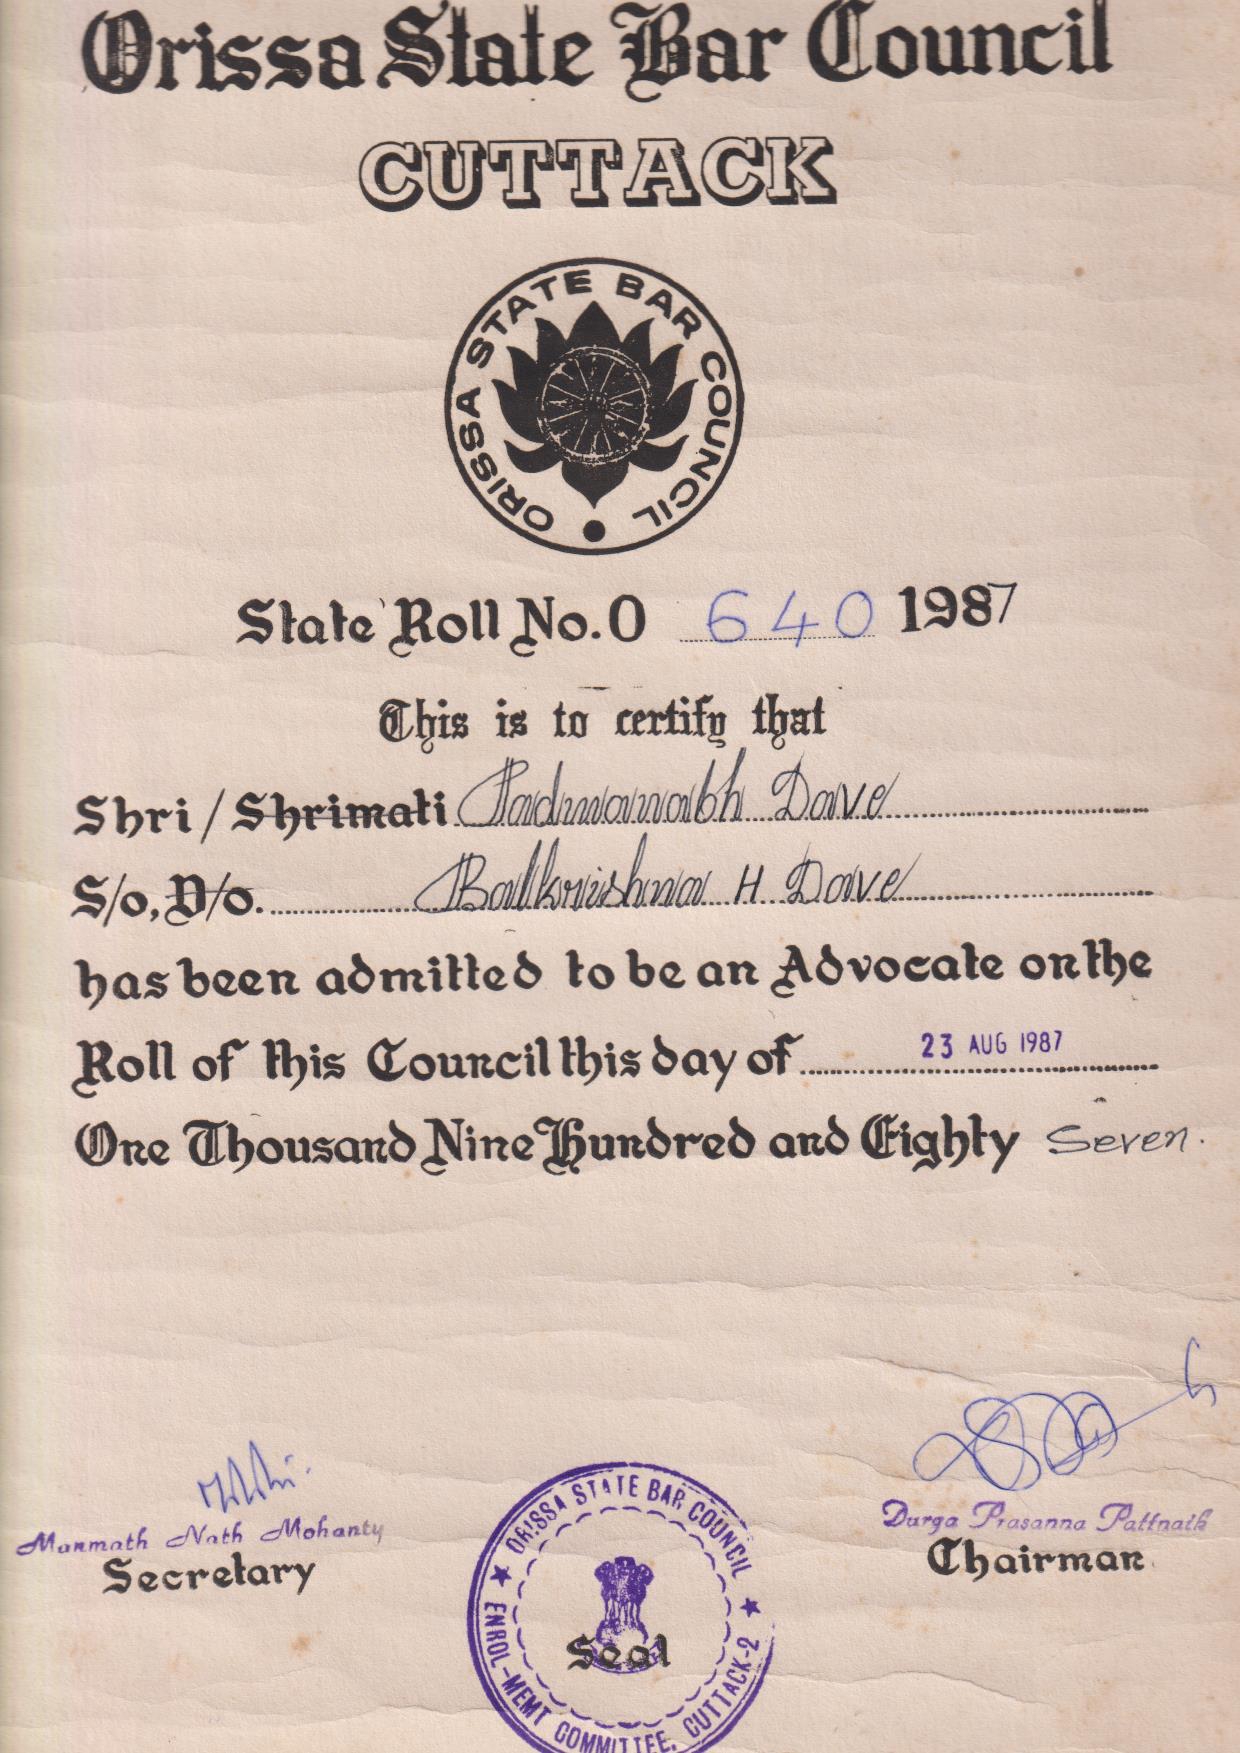 Orissa State Bar Council
CUTTACK
ORISSA STATE BAR COUNCIL
State Roll No. O 640 1987
This is to certify that
Shri / Shrimati Padmanabh Dave
S/o, D/o. Balkrishna H Dave
has been admitted to be an Advocate on the
Roll of this Council this day of 23 AUG 1987
One Thousand Nine Hundred and Eighty Seven.
Manmath Nath Mohanty
Secretary
ORISSA STATE BAR COUNCIL
ENROL-MEMT COMMITTEE, CUTTACK-2
Seal
Durga Prasanna Pattnaik
Chairman